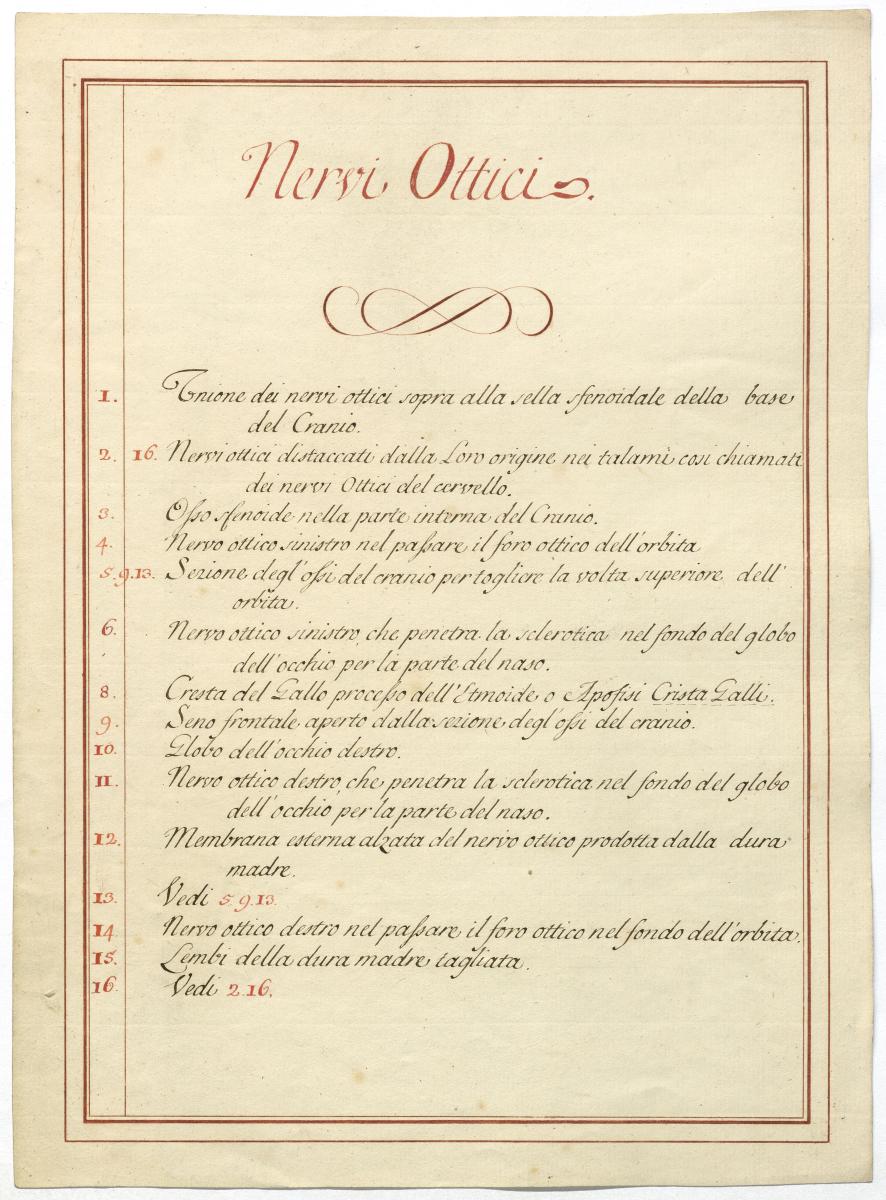 Nervi Ottici.
1. Unione dei nervi ottici sopra alla sella sfenoidale della base
del Cranio.
2. 16. Nervi ottici distaccati dalla Loro origine nei talami cosi chiamati
dei nervi Ottici del cervello.
3. Osso sfenoide nella parte interna del Cranio.
4. Nervo ottico sinistro nel passare il foro ottico dell'orbita
5. 9. 13. Sezione degl'ossi del cranio per togliere la volta superiore dell'
orbita.
6. Nervo ottico sinistro, che penetra la sclerotica nel fondo del globo
dell'occhio per la parte del naso.
8. Cresta del Gallo processo dell'Etmoide o Apofisi Crista Galli.
9. Seno frontale aperto dalla sezione degl'ossi del cranio.
10. Globo dell'occhio destro.
11. Nervo ottico destro, che penetra la sclerotica nel fondo del globo
dell'occhio per la parte del naso.
12. Membrana esterna alzata del nervo ottico prodotta dalla dura
madre.
13. Vedi 5. 9. 13.
14 Nervo ottico destro nel passare il foro ottico nel fondo dell'orbita.
15. Lembi della dura madre tagliata.
16 Vedi 2. 16.